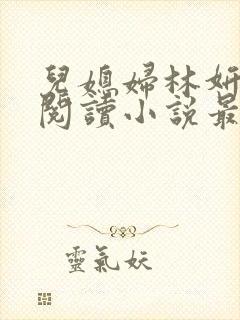 兒媳婦林妍
閱讀小說最
靈氣妖